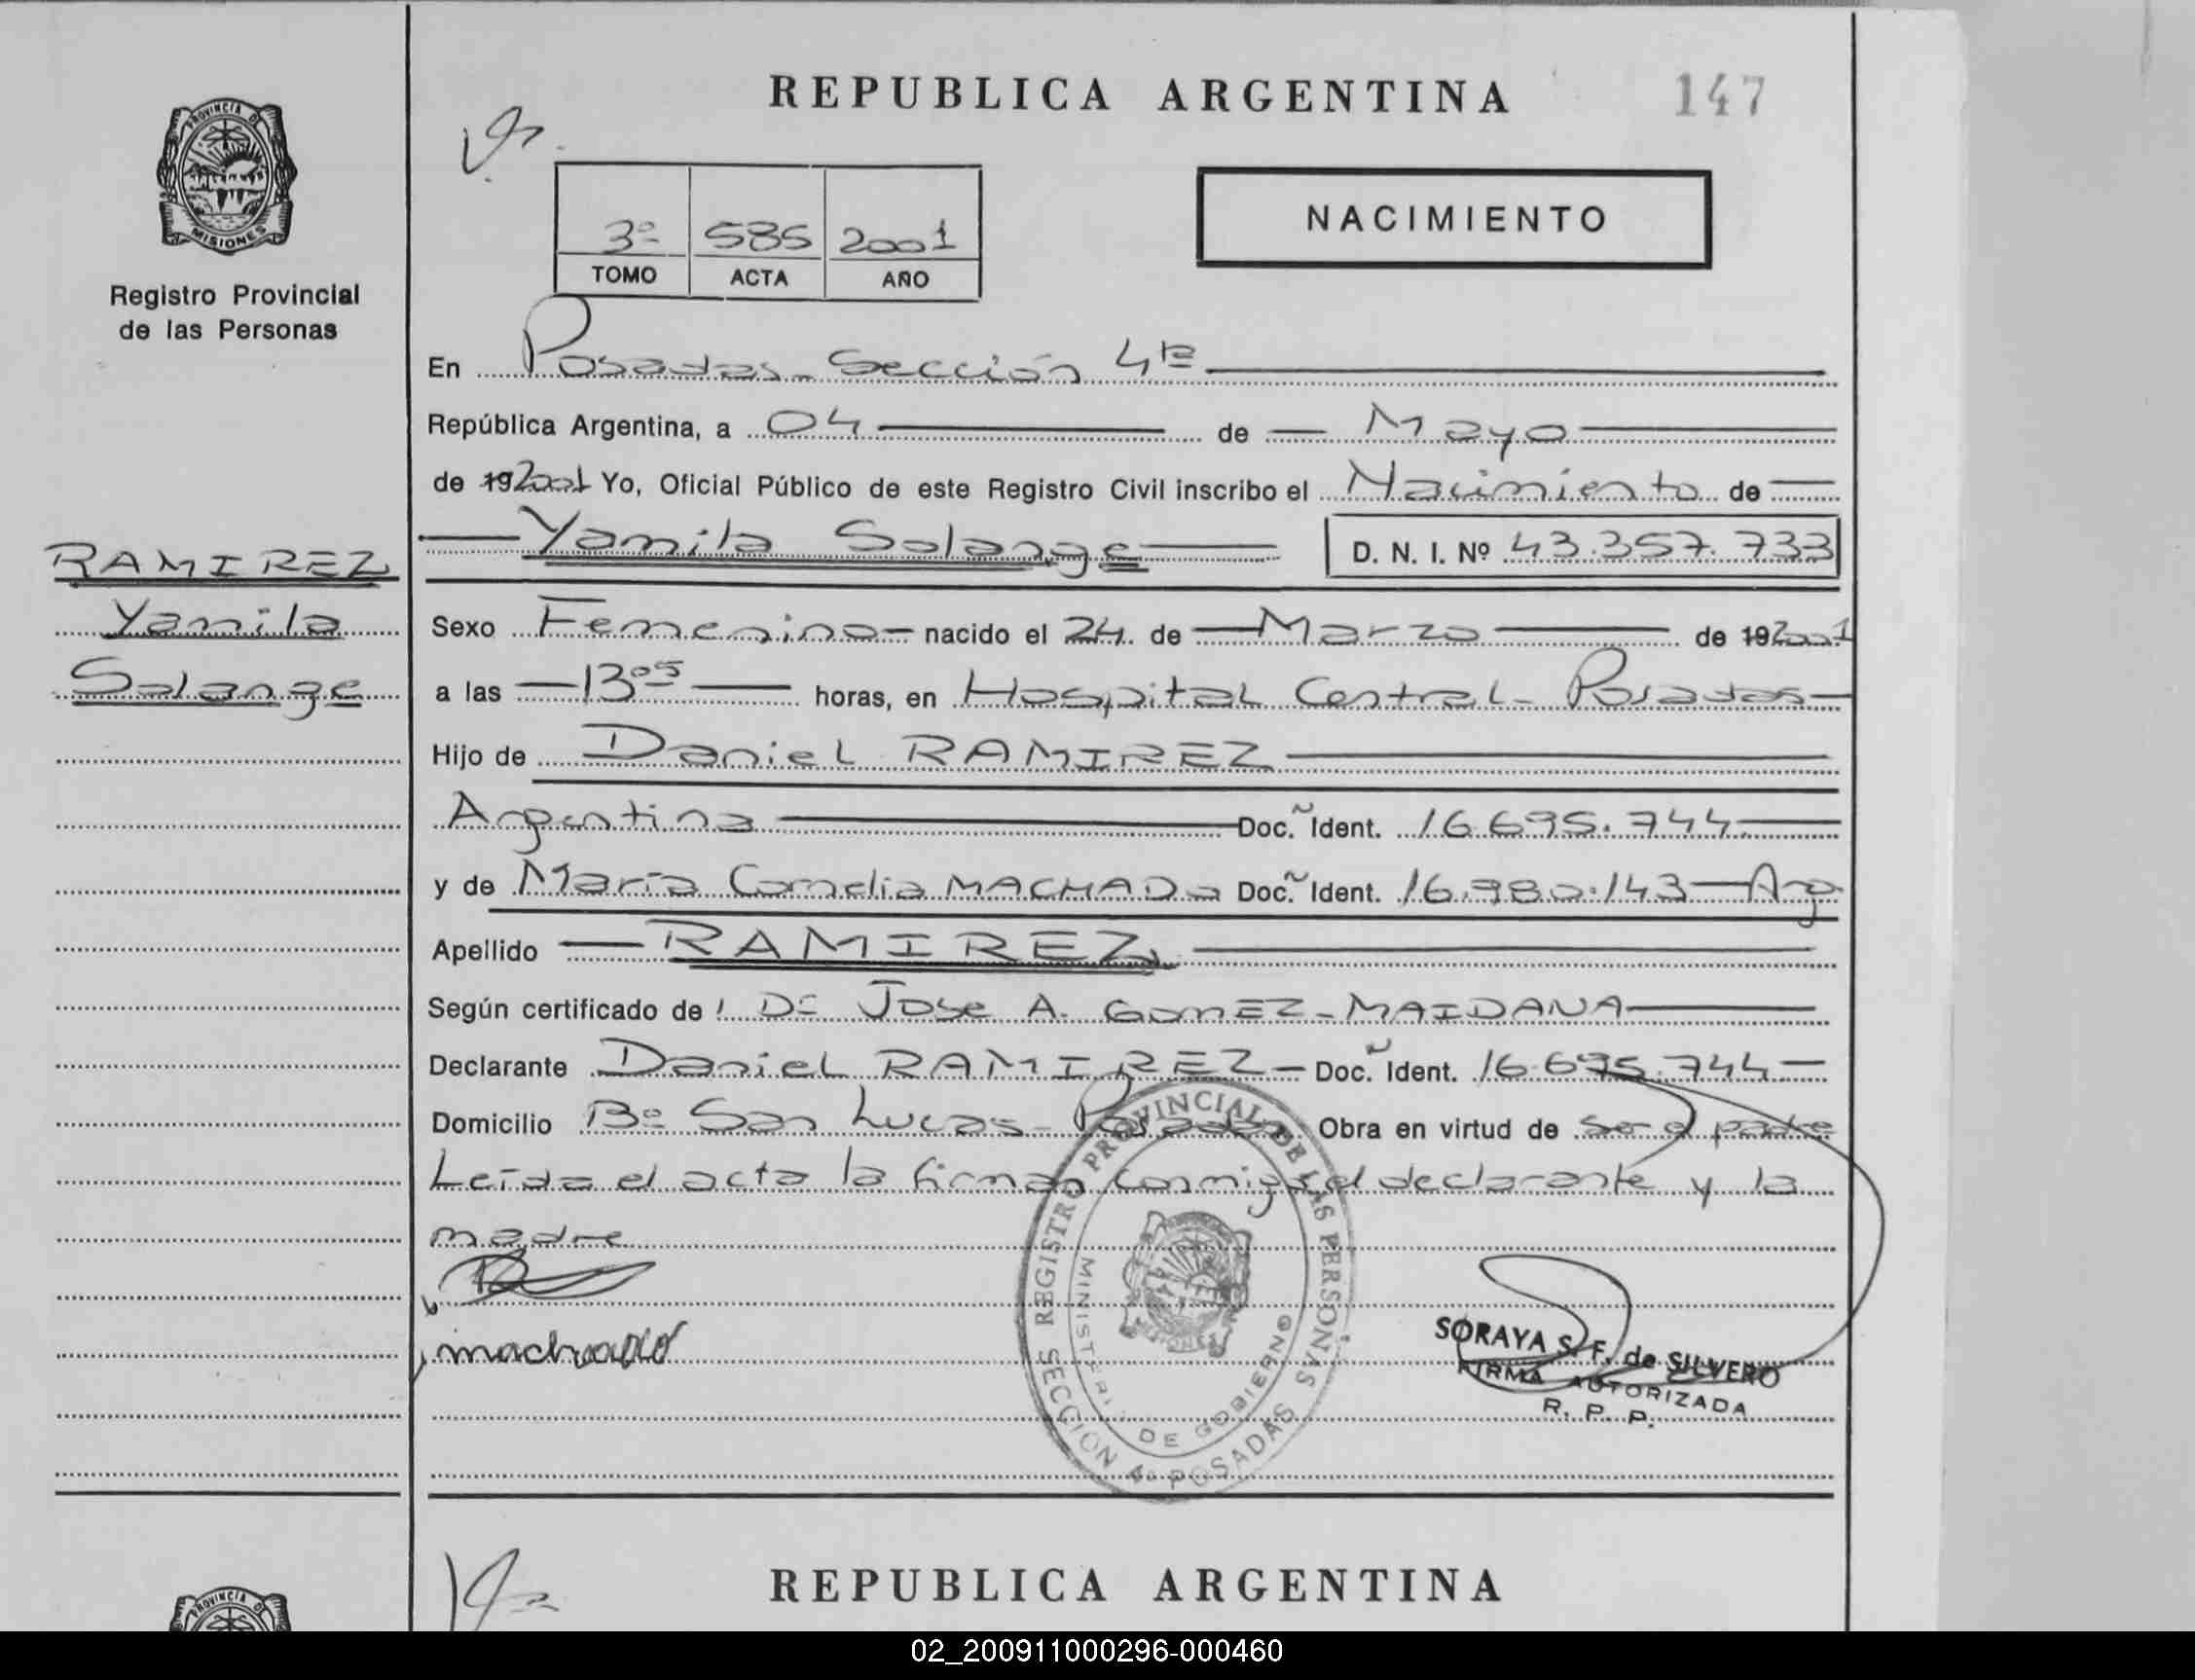 REPUBLICA ARGENTINA
147
PROVINCIA DE
MISIONES
Registro Provincial
de las Personas
3º 585 2001
TOMO ACTA AÑO
NACIMIENTO
En Posadas - Sección 4ta
República Argentina, a 04 de Mayo
de 192001 Yo, Oficial Público de este Registro Civil inscribo el Nacimiento de
Yamila Solange D. N. I. Nº 43.357.733
RAMIREZ
Yamila
Solange
Sexo Femenino nacido el 24 de Marzo de 192001
a las 13 05 horas, en Hospital Central - Posadas
Hijo de Daniel RAMIREZ
Argentina Doc. Ident. 16.695.744
y de María MACHADO Doc. Ident. 16.980.143 Arg.
Apellido RAMIREZ
Según certificado de Jose A. GOMEZ - MAIDANA
Declarante Daniel RAMIREZ Doc. Ident. 16.695.744
Domicilio Bº San Lucas - Posadas Obra en virtud de ser el padre
Leída el acta la firman conmigo el declarante y la
madre
machado
REGISTRO PROVINCIAL DE LAS PERSONAS
MINISTERIO DE GOBIERNO
SECCION 4º POSADAS
SORAYA S. F. de SILVERO
FIRMA AUTORIZADA
R. P. P.
REPUBLICA ARGENTINA
PROVINCIA D
02_200911000296-000460